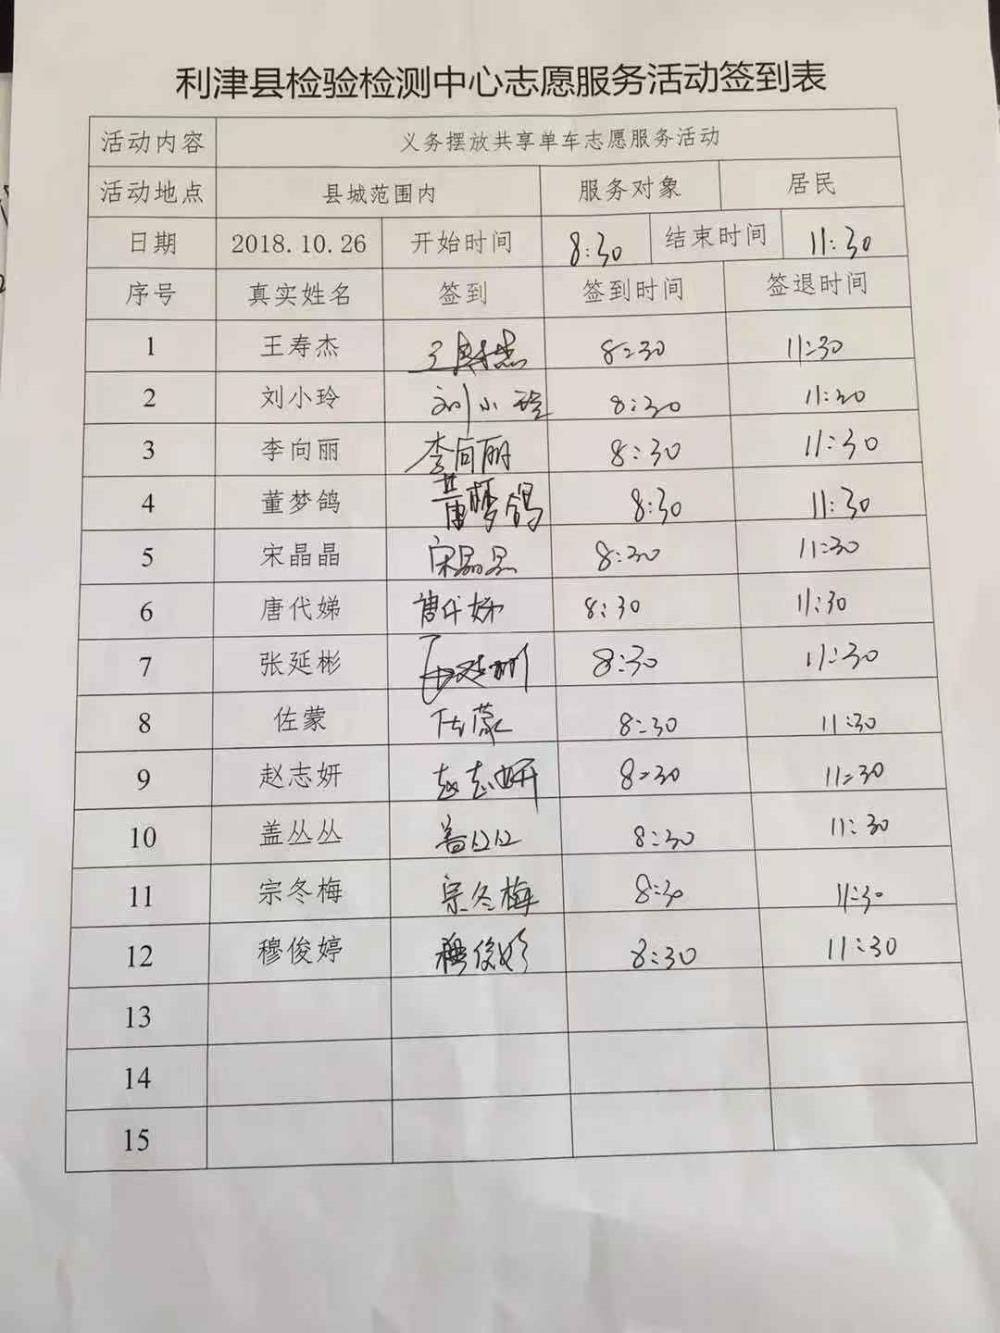 利津县检验检测中心志愿服务活动签到表
活动内容 义务摆放共享单车志愿服务活动
活动地点 县城范围内 服务对象 居民
日期 2018.10.26 开始时间 8:30 结束时间 11:30
序号 真实姓名 签到 签到时间 签退时间
1 王寿杰 王寿杰 8:30 11:30
2 刘小玲 刘小玲 8:30 11:30
3 李向丽 李向丽 8:30 11:30
4 董梦鸽 董梦鸽 8:30 11:30
5 宋晶晶 宋晶晶 8:30 11:30
6 唐代娣 唐代娣 8:30 11:30
7 张延彬 张延彬 8:30 11:30
8 佐蒙 佐蒙 8:30 11:30
9 赵志妍 赵志妍 8:30 11:30
10 盖丛丛 盖丛丛 8:30 11:30
11 宗冬梅 宗冬梅 8:30 11:30
12 穆俊婷 穆俊婷 8:30 11:30
13
14
15